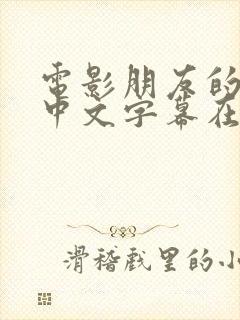 電影朋友的
中文字幕在
滑稽戏里的小